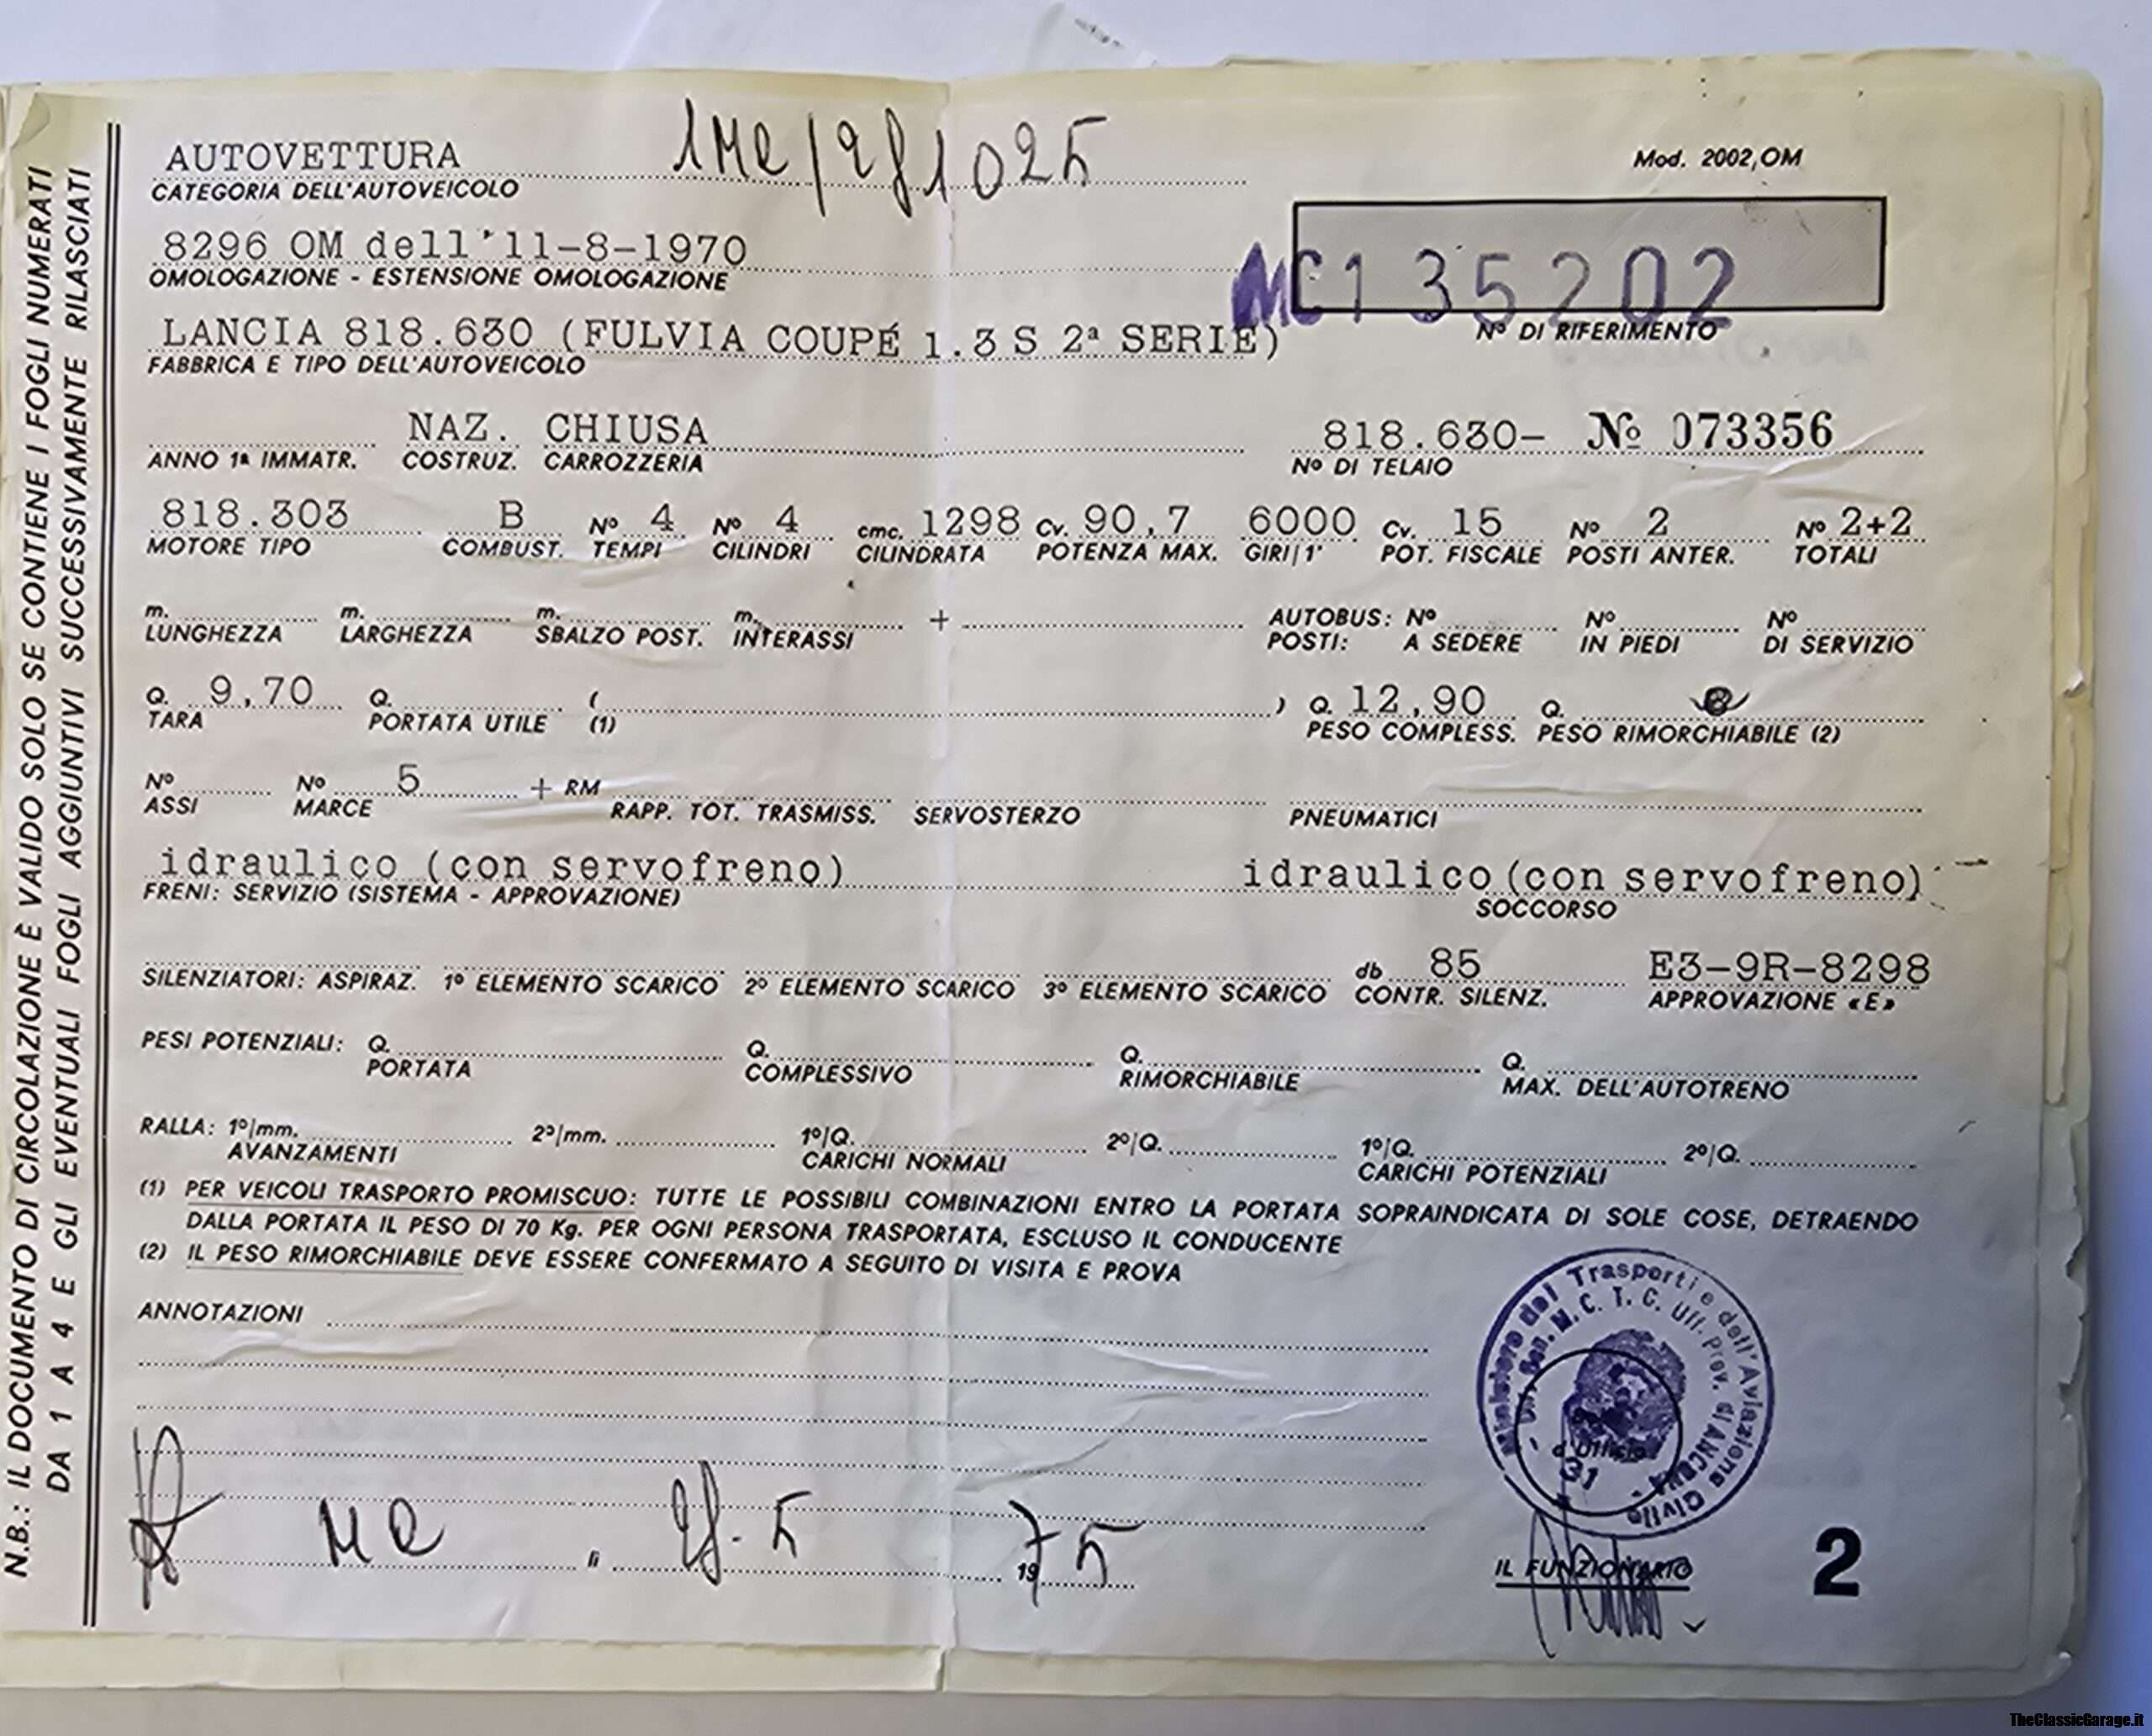 N.B.: IL DOCUMENTO DI CIRCOLAZIONE È VALIDO SOLO SE CONTIENE I FOGLI NUMERATI
DA 1 A 4 E GLI EVENTUALI FOGLI AGGIUNTIVI SUCCESSIVAMENTE RILASCIATI
AUTOVETTURA
CATEGORIA DELL'AUTOVEICOLO
Mod. 2002,OM
8296 OM dell'11-8-1970
OMOLOGAZIONE - ESTENSIONE OMOLOGAZIONE
MC135202
Nº DI RIFERIMENTO
LANCIA 818.630 (FULVIA COUPÉ 1.3 S 2ª SERIE)
FABBRICA E TIPO DELL'AUTOVEICOLO
NAZ. CHIUSA 818.630- Nº 073356
ANNO 1ª IMMATR. COSTRUZ. CARROZZERIA Nº DI TELAIO
818.303 B Nº 4 Nº 4 cmc. 1298 Cv. 90,7 6000 Cv. 15 Nº 2 Nº 2+2
MOTORE TIPO COMBUST. TEMPI CILINDRI CILINDRATA POTENZA MAX. GIRI/1' POT. FISCALE POSTI ANTER. TOTALI
m. m. m. m. + AUTOBUS: Nº Nº Nº
LUNGHEZZA LARGHEZZA SBALZO POST. INTERASSI POSTI: A SEDERE IN PIEDI DI SERVIZIO
Q. 9,70 Q. ( ) Q. 12,90 Q.
TARA PORTATA UTILE (1) PESO COMPLESS. PESO RIMORCHIABILE (2)
Nº Nº 5 + RM
ASSI MARCE RAPP. TOT. TRASMISS. SERVOSTERZO PNEUMATICI
idraulico (con servofreno) idraulico (con servofreno)
FRENI: SERVIZIO (SISTEMA - APPROVAZIONE) SOCCORSO
db 85 E3-9R-8298
SILENZIATORI: ASPIRAZ. 1º ELEMENTO SCARICO 2º ELEMENTO SCARICO 3º ELEMENTO SCARICO CONTR. SILENZ. APPROVAZIONE «E»
PESI POTENZIALI: Q. Q. Q. Q.
PORTATA COMPLESSIVO RIMORCHIABILE MAX. DELL'AUTOTRENO
RALLA: 1º/mm. 2º/mm. 1º/Q. 2º/Q. 1º/Q. 2º/Q.
AVANZAMENTI CARICHI NORMALI CARICHI POTENZIALI
(1) PER VEICOLI TRASPORTO PROMISCUO: TUTTE LE POSSIBILI COMBINAZIONI ENTRO LA PORTATA SOPRAINDICATA DI SOLE COSE, DETRAENDO
DALLA PORTATA IL PESO DI 70 Kg. PER OGNI PERSONA TRASPORTATA, ESCLUSO IL CONDUCENTE
(2) IL PESO RIMORCHIABILE DEVE ESSERE CONFERMATO A SEGUITO DI VISITA E PROVA
ANNOTAZIONI
Ministero dei Trasporti e dell'Aviazione Civile
Gen. M.C.T.C. Uff. Prov. di ANCONA
d'Ufficio
31
li 19 75
IL FUNZIONARIO
2
TheClassicGarage.it